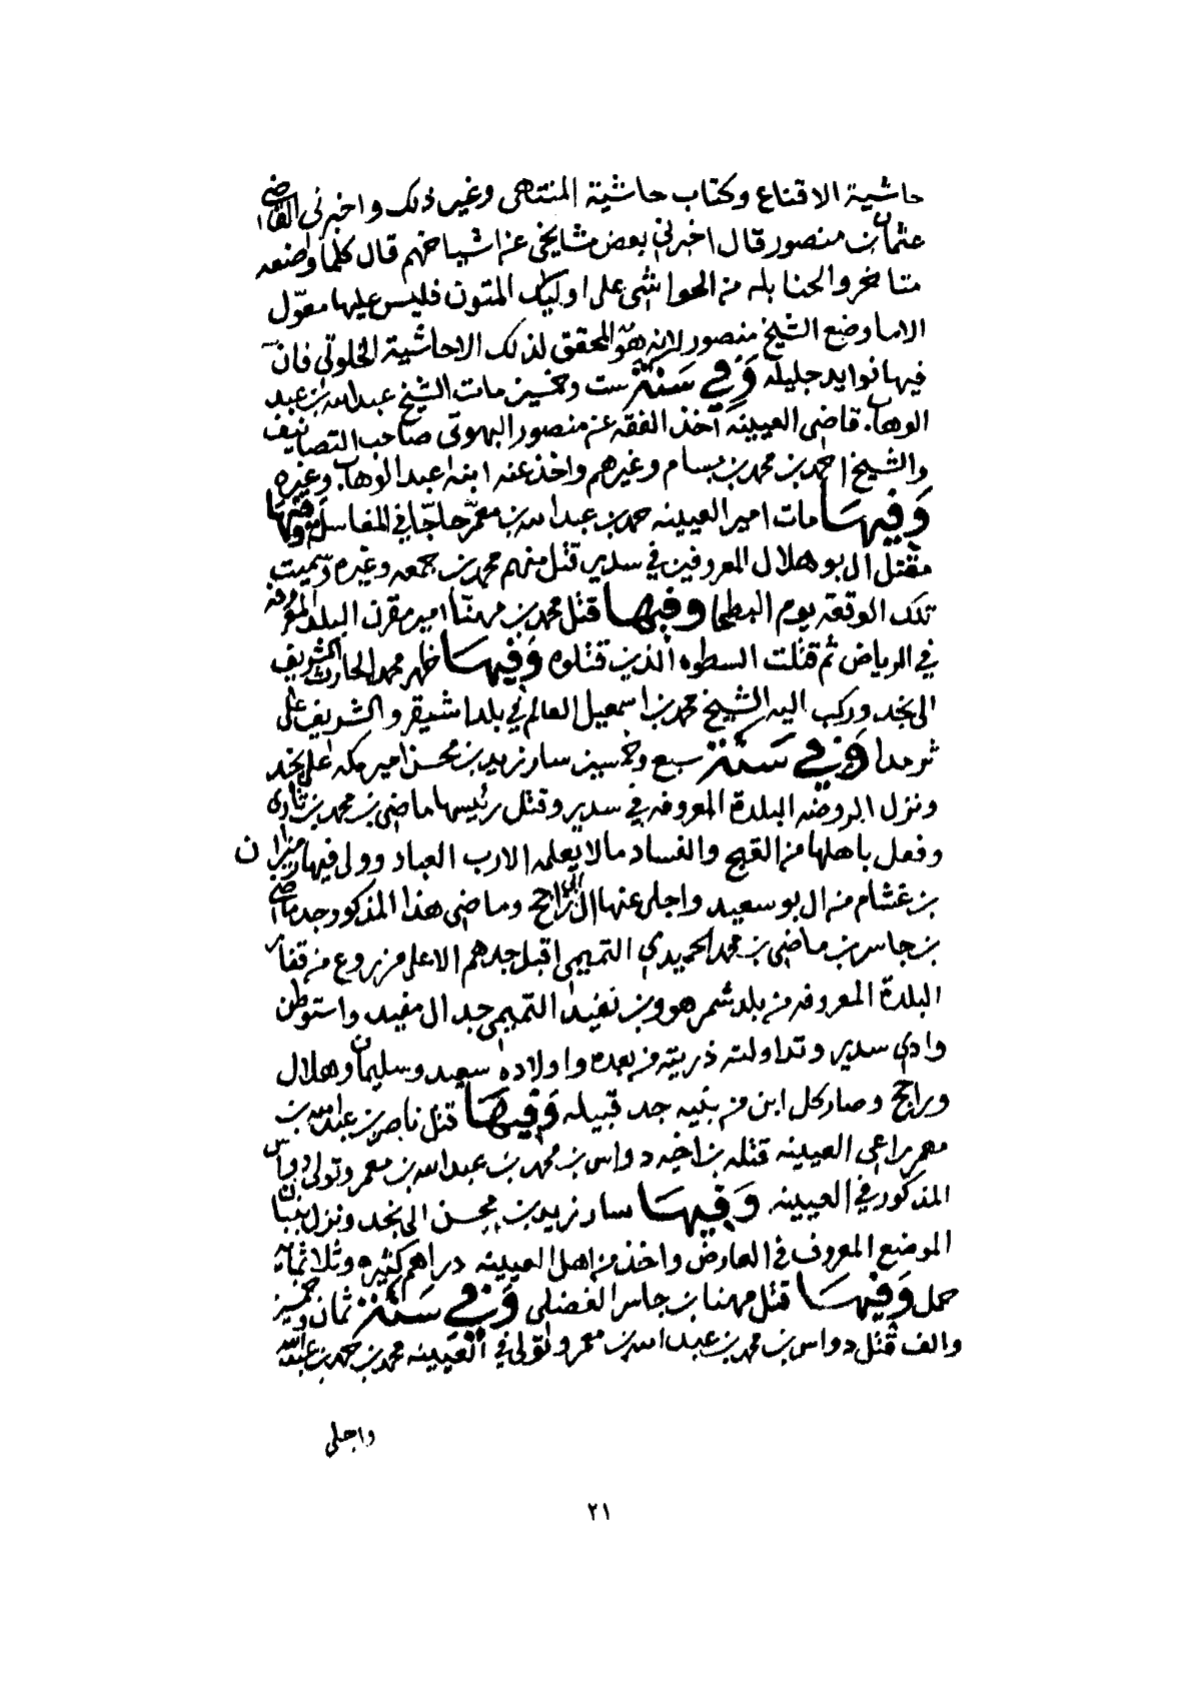 حاشية الاقناع وكتاب حاشية المنتهى وغير ذلك واخبرني القاضي
عثمان بن منصور قال اخبرني بعض مشايخي عن اشياخهم قال كلما وضعه
متاخروا الحنابله من الحواشي على اوليك المتون فليس عليها معوّل
الا ما وضع الشيخ منصور لانه هو المحقق لذلك الا حاشية الخلوتي فان
فيها فوايد جليله وَفي سَنَة ست وخمسين مات الشيخ عبدالله بن عبد
الوهاب قاضي العيينه آخذ الفقه عن منصور البهوتي صاحب التصانيف
والشيخ احمد بن محمد بن بسام وغيرهم واخذ عنه ابنه عبدالوهاب وغيره
وَفيهَا مات امير العيينه حمد بن عبدالله بن معمر حاجّا في المغاسل وَفيهَا
مقتل ال بو هلال المعروفين في سدير قتل منهم محمد بن جمعه وغيره وسميت
تلك الوقعه يوم البطحا وفيها قتل محمد بن مهنّا امير مقرن البلد المعروفه
في الرياض ثم قتلت السطوه الذين قتلوه وَفيهَا ظهر محمد الحارث الشريف
الى نجد وركب اليه الشيخ محمد بن اسمعيل العالم في بلد اشيقر والشريف على
ثرمدا وَفي سَنَة سبع وخمسين سار زيد بن محسن امير مكه على نجد
ونزل الروضه البلدة المعروفه في سدير وقتل رئيسها ماضي بن محمد بن ثاري
وفعل باهلها من القبح والفساد مالا يعلمه الا رب العباد وولى فيها رميزان
بن غشام من ال بو سعيد واجلى عنها ال ابي راجح وماضي هذا المذكور جد ماضي
بن جاسر بن ماضي بن محمد الحميدي التميمي اقبل جدهم الاعلى مزروع من قفار
البلدة المعروفه من بلد شمر هو وبن نفيد التميمي جد ال مفيد واستوطن
وادي سدير وتداولته ذريته من بعده واولاده سعيد وسليمان وهلال
وراجح وصار كل ابن من بنيه جد قبيله وَفيهَا قتل ناصر بن عبدالله بن
معمر راعي العيينه قتله بن اخيه دواس بن محمد بن عبدالله بن معمر وتولى دواس
المذكور في العيينه وَفيهَا سار زيد بن محسن الى نجد ونزل بنبان
الموضع المعروف في العارض واخذ من اهل العيينه دراهم كثيره وثلاثمائة
حمل وَفيهَا قتل مهنا بن جاسر الفضلي وَفي سَنَة ثمان وخمسين
والف قُتل دواس بن محمد بن عبدالله بن معمر وتولى في العيينه محمد بن حمد بن عبدالله
واجلى
٢١